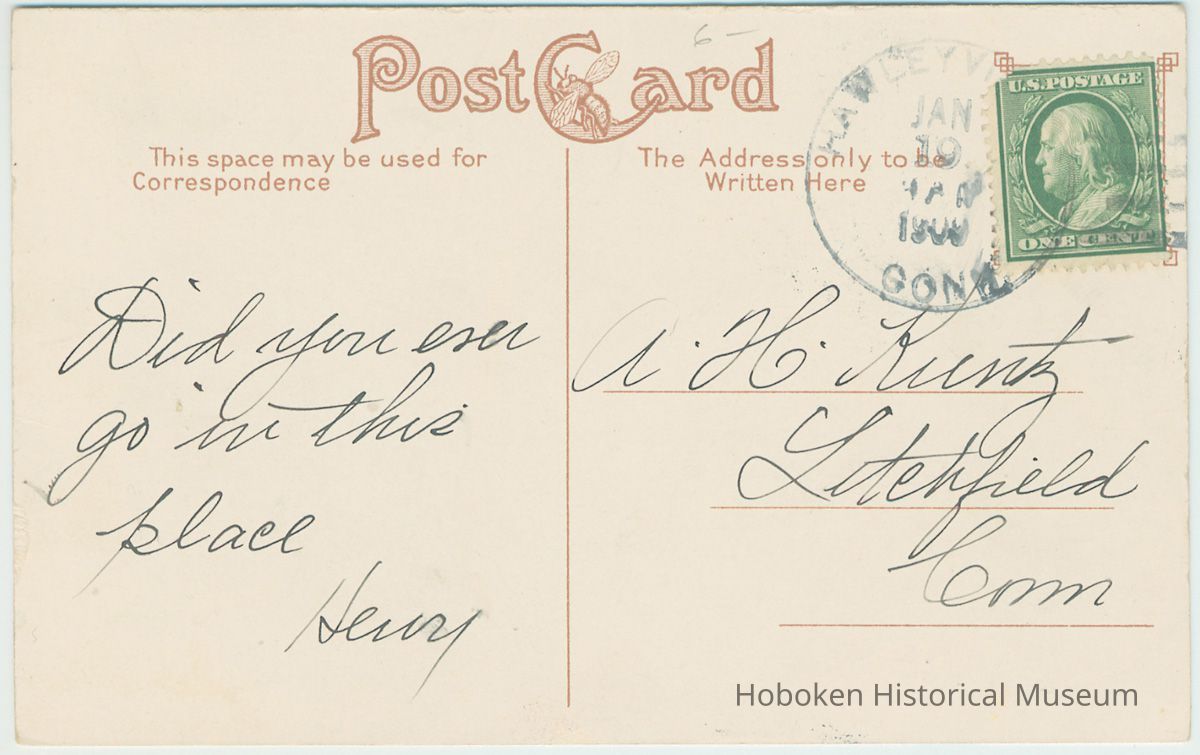 6 –
Post Card
This space may be used for
Correspondence
The Address only to be
Written Here
HAWLEYVI
JAN
19
AM
1909
CONN.
U.S. POSTAGE
ONE CENT
Did you ever
go in this
place
Henry
A. H. Kuntz
Litchfield
Conn
Hoboken Historical Museum